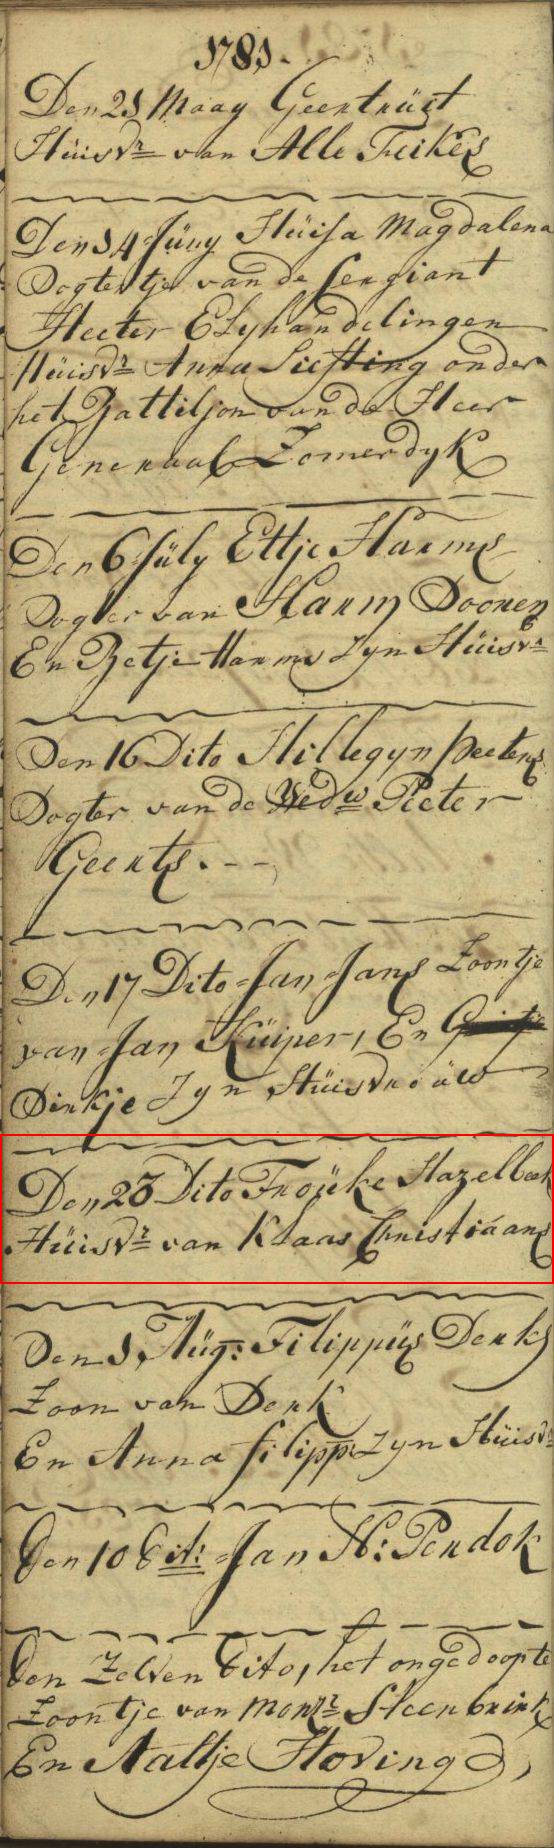 1781.
Den 21 Maay Geertruit
Huisvr van Alle Feikes
Den 14 Juny Huisa Magdalena
Dogtertje van de Sergiant
Heeter Elyhandelingen
Huisvr Anna Siefting onder
het Battiljon van de Heer
Generaal Zomerdyk
Den 6 July Ettje Harms
Dogter van Harm Doornen
En Betje Harms Zyn Huisvr
Den 16 Dito Hillegyn Peeters
Dogter van de Wedw Pieter
Geerts. - -
Den 17 Dito Jan Jans Zoontje
van Jan Kuiper, En
Dirkje Zyn Huisvrouw
Den 23 Dito Frouke Hazelbeek
Huisvr van Klaas Christiaans
Den 1 Aug: Filippus Derks
Zoon van Derk
En Anna filipp: Zyn Huisvr
Den 10 Dit: Jan H: Pendok
Den Zelven Dito, het ongedoopte
Zoontje van Monsr Steenbrink
En Aaltje Hoving